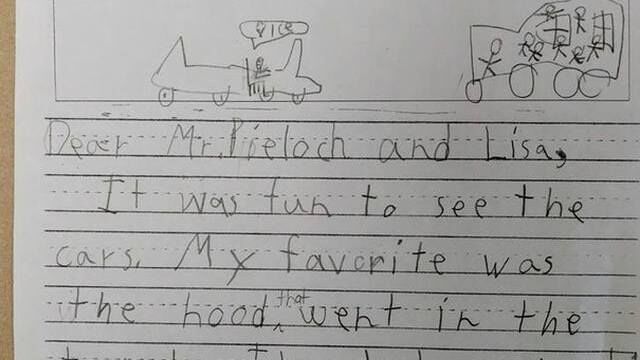 Dear Mr. Pieloch and Lisa,
It was fun to see the
cars. My favorite was
the hood, that went in the